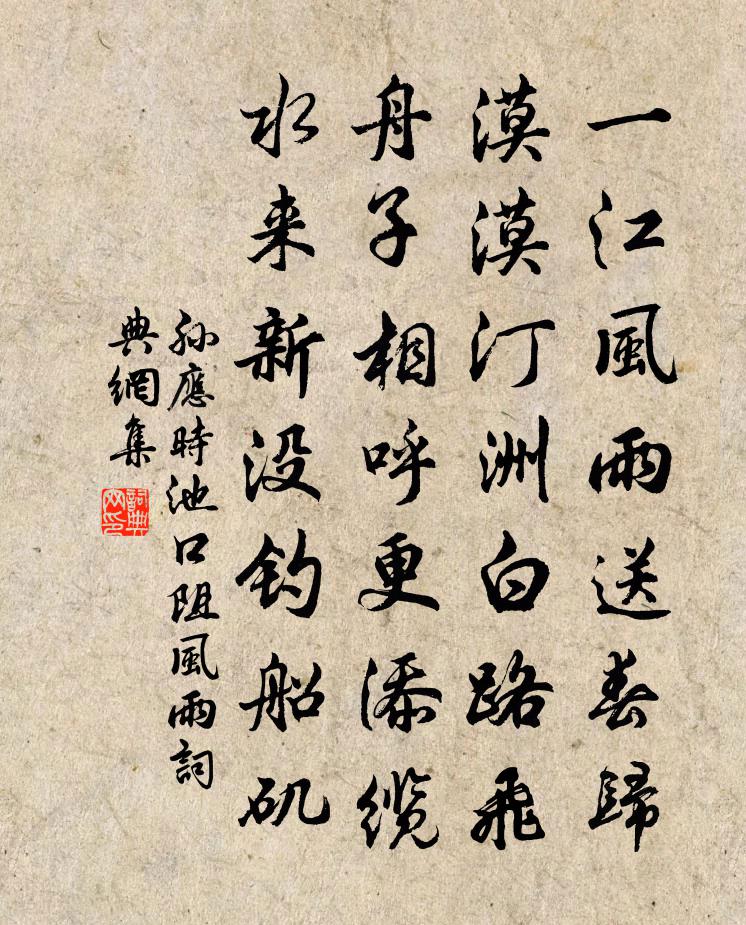 一江風雨送春歸
漠漠汀洲白路飛
舟子相呼更添缆
水来新没钓船矶
孙應時池口阻風雨詞
典網集
詞典
网印